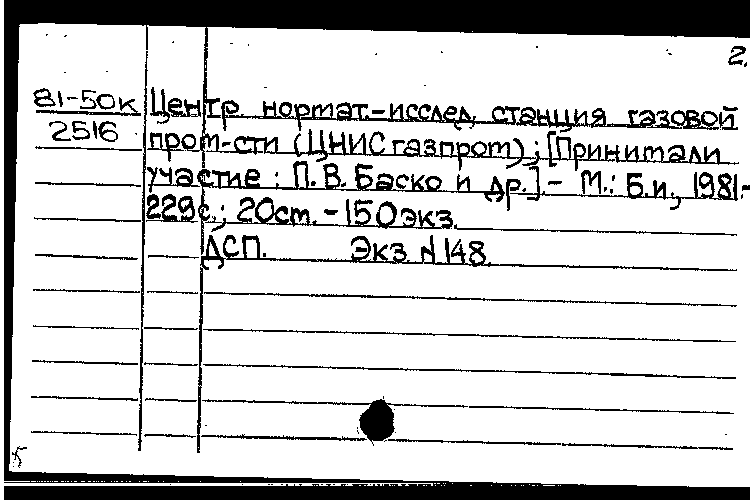 2.
81-50к Центр. нормат.-исслед. станция газовой
2516 пром-сти (ЦНИСгазпром) ; [Принимали
участие : П. В. Баско и др.]. – М.: Б.и., 1981.-
229с. ; 20см. – 150экз.
ДСП. Экз N 148.